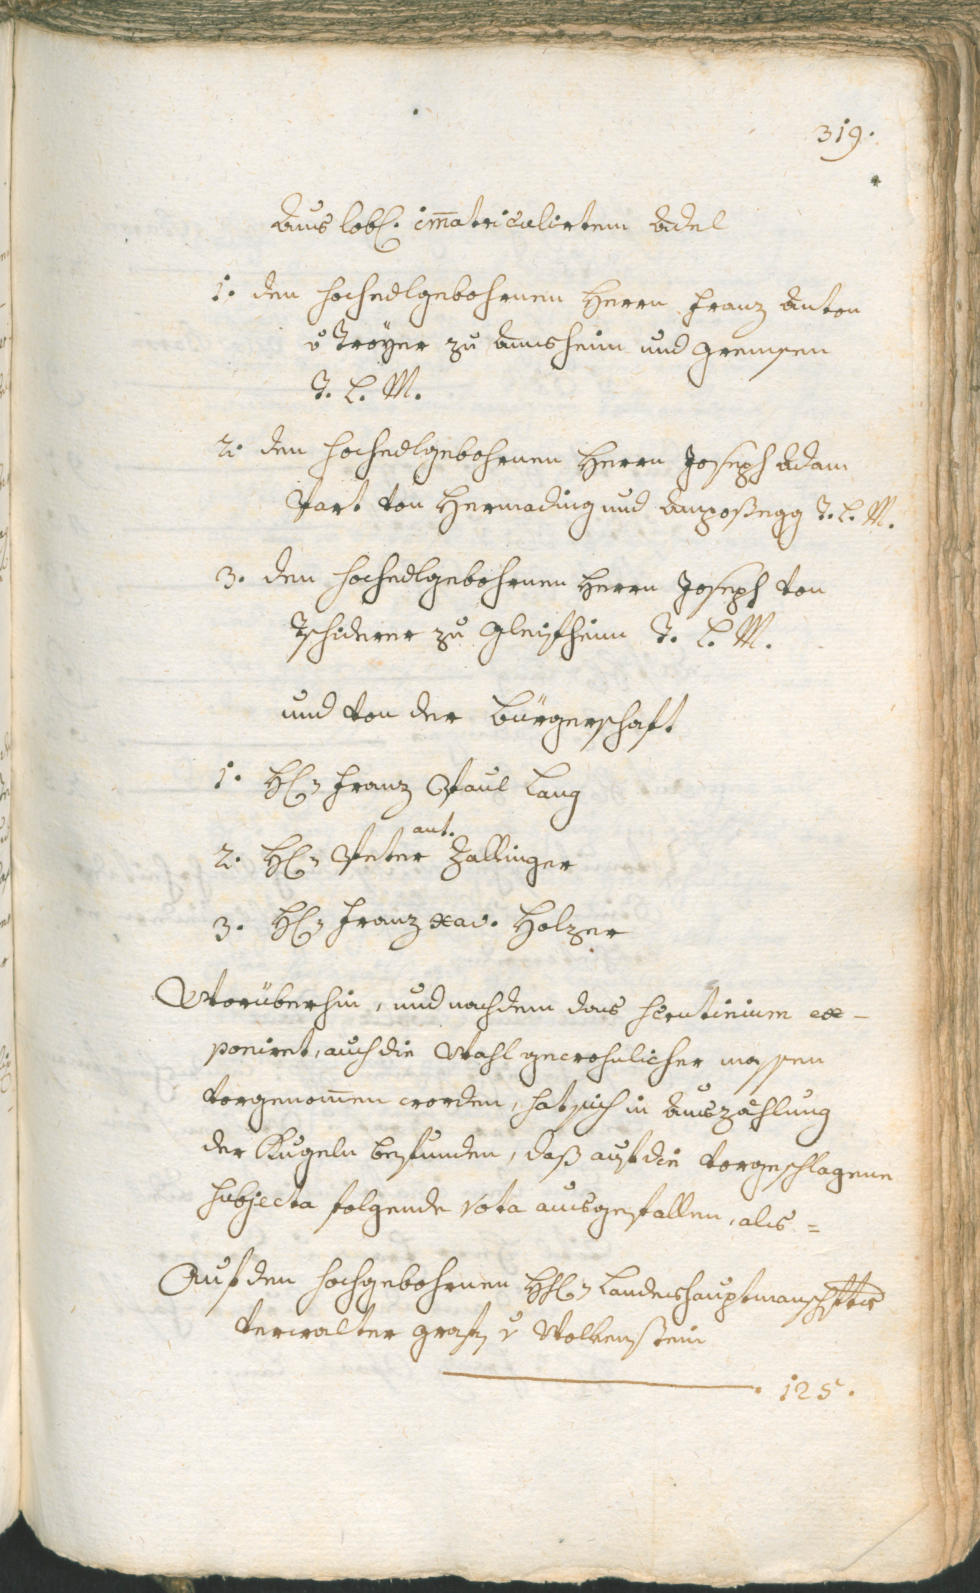 319.
Aus lobl. im̅atriculirtem Adel
1. den hochedlgebohrnen Herrn Franz Anton
v Troÿer zu Aunsheim und Grempen
T. L. M.
2. den hochedlgebohrnen Herrn Joseph Adam
Vart von Hermading und T. L. M.
3. den hochedlgebohrnen Herrn Joseph von
Tschiderer zu Gleifheim T. L. M.
und von der Bürgerschaft
1. H: Franz Paul Lang
2. H: Peter ant. Zallinger
3. H: Franz Xav. Holzer
Worüberhin, und nachdem das Scrutinium ex-
poniret, auch die Wahl gewohnlicher massen
vorgenom̅en worden, hat sich in Auszahlung
der Kugeln befunden, daß auf die vorgeschlagene
Subjecta folgende Vota ausgefallen, als =
Auf den hochgebohrnen H: Landeshauptmanschafts
Verwalter Grafen v Wolkenstein
125.